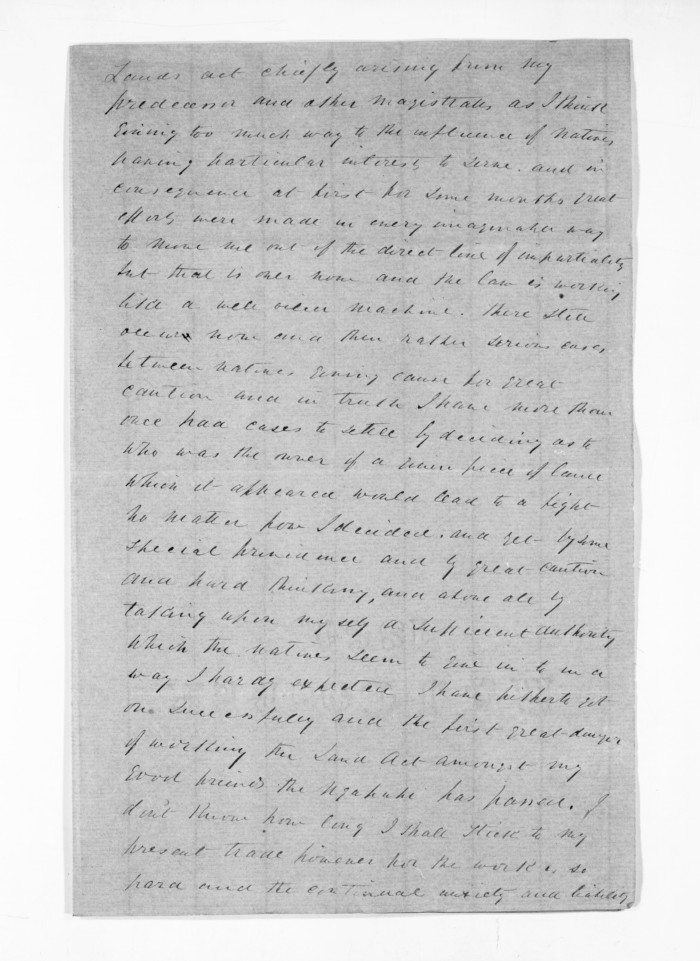 Lands act chiefly arising from my
predecessor and other magistrates as I think
giving too much way to the influence of natives
having particular interests to serve. and in
consequence at first for some months great
efforts were made in every imaginable way
to move me out of the direct line of impartiality
but that is over now and the law is working
like a well oiled machine. there still
occurs now and then rather serious cases
between natives giving cause for great
caution and in truth I have more than
once had cases to settle by deciding as to
who was the owner of a given piece of land
which it appeared would lead to a fight
no matter how I decided. and yet by some
special providence and by great caution
and hard thinking, and above all by
taking upon myself a sufficient authority
which the natives seem to give in to in a
way I hardly expected I have hitherto got
on successfully and the first great danger
of working the Land Act amongst my
good friends the Ngapuhi has passed. I
don't know how long I shall stick to my
present trade however for the work is so
hard and the continual anxiety and liability